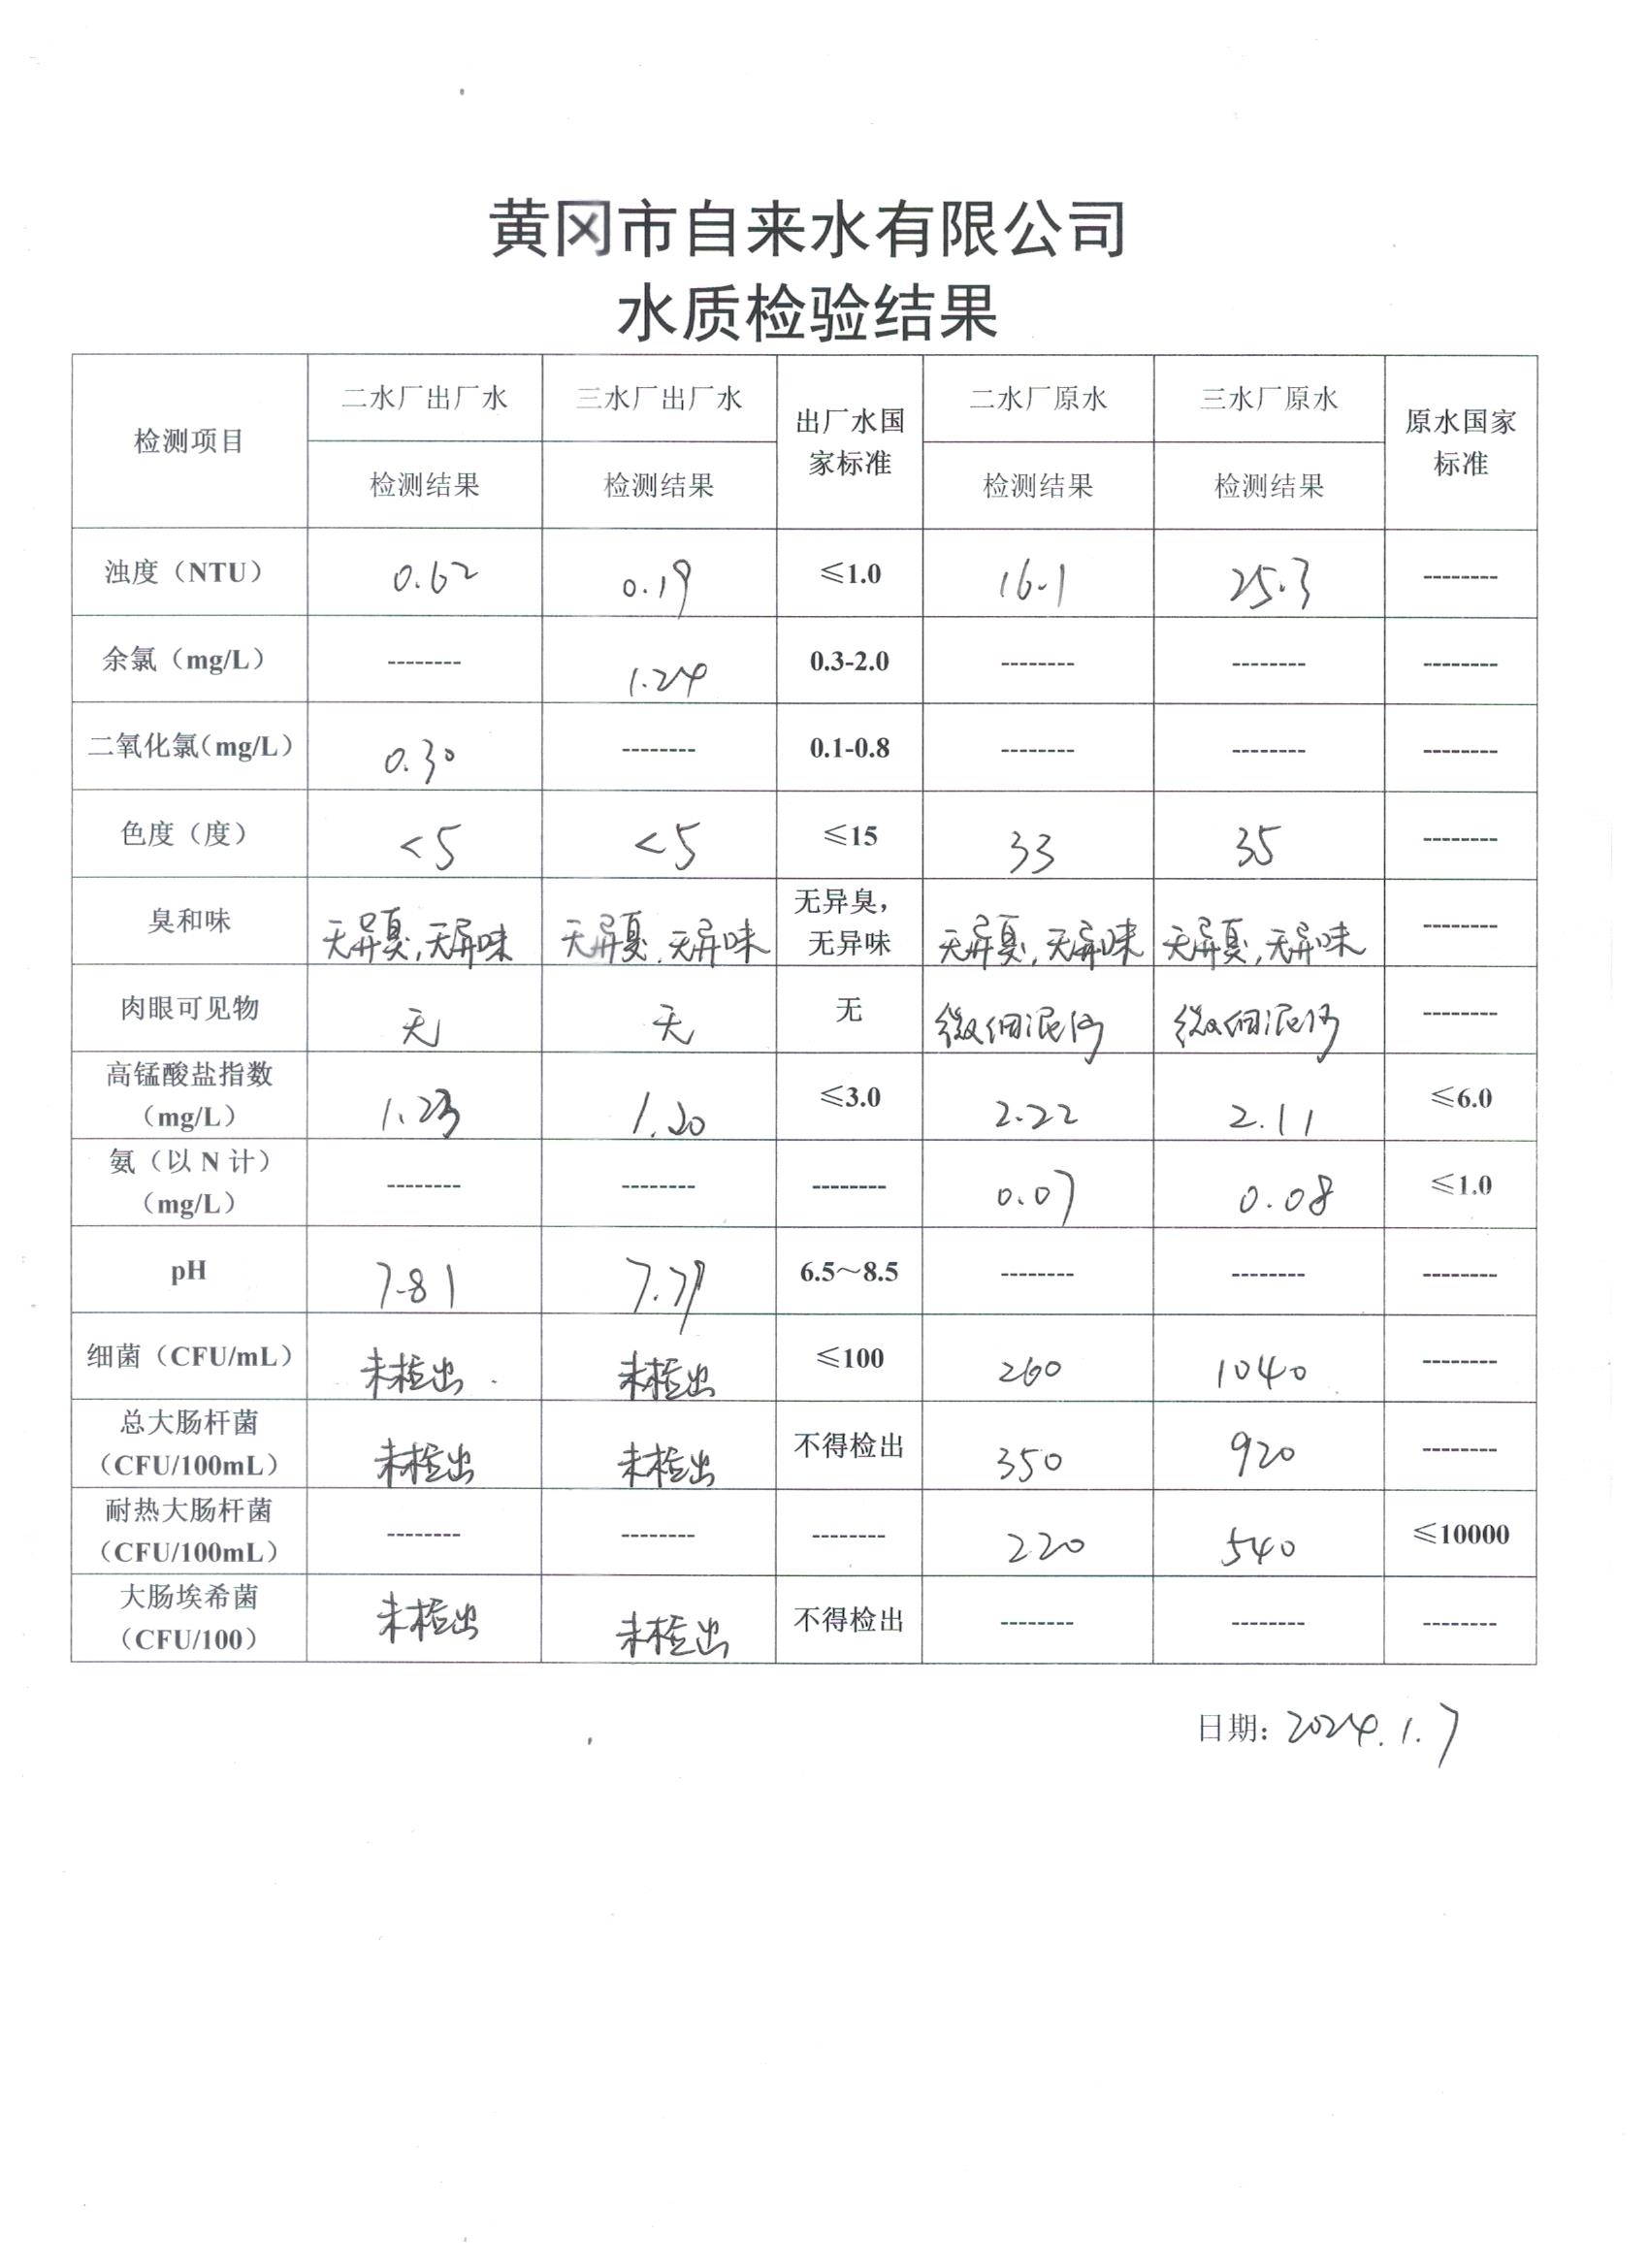 黄冈市自来水有限公司
水质检验结果
检测项目 二水厂出厂水 三水厂出厂水 出厂水国家标准 二水厂原水 三水厂原水 原水国家标准
检测结果 检测结果 检测结果 检测结果
浊度（NTU） 0.62 0.19 ≤1.0 16.1 25.3 --------
余氯（mg/L） -------- 1.24 0.3-2.0 -------- -------- --------
二氧化氯（mg/L） 0.30 -------- 0.1-0.8 -------- -------- --------
色度（度） <5 <5 ≤15 33 35 --------
臭和味 无异臭，无异味 无异臭，无异味 无异臭，无异味 无异臭，无异味 无异臭，无异味 --------
肉眼可见物 无 无 无 微细泥沙 微细泥沙 --------
高锰酸盐指数（mg/L） 1.23 1.20 ≤3.0 2.22 2.11 ≤6.0
氨（以N计）（mg/L） -------- -------- -------- 0.07 0.08 ≤1.0
pH 7.81 7.79 6.5～8.5 -------- -------- --------
细菌（CFU/mL） 未检出 未检出 ≤100 260 1040 --------
总大肠杆菌（CFU/100mL） 未检出 未检出 不得检出 350 920 --------
耐热大肠杆菌（CFU/100mL） -------- -------- -------- 220 540 ≤10000
大肠埃希菌（CFU/100） 未检出 未检出 不得检出 -------- -------- --------
日期：2024.1.7